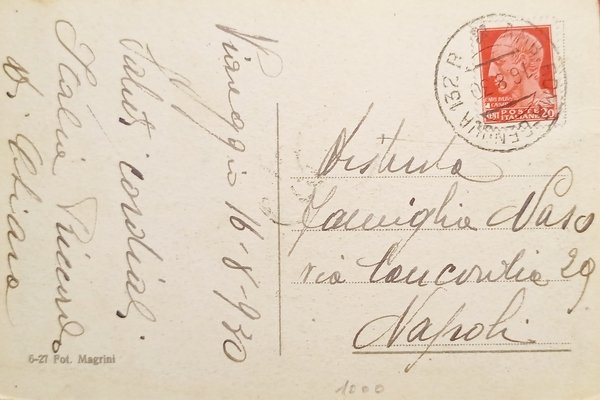 Viareggio 16-8-930
Saluti cordiali
Italia Riccardo
Di Chiara
Distinta
Famiglia Naso
via Concordia 29
Napoli
POSTE
ITALIANE
CENT 20
132 R
16 8 30
6-27 Fot. Magrini
1000